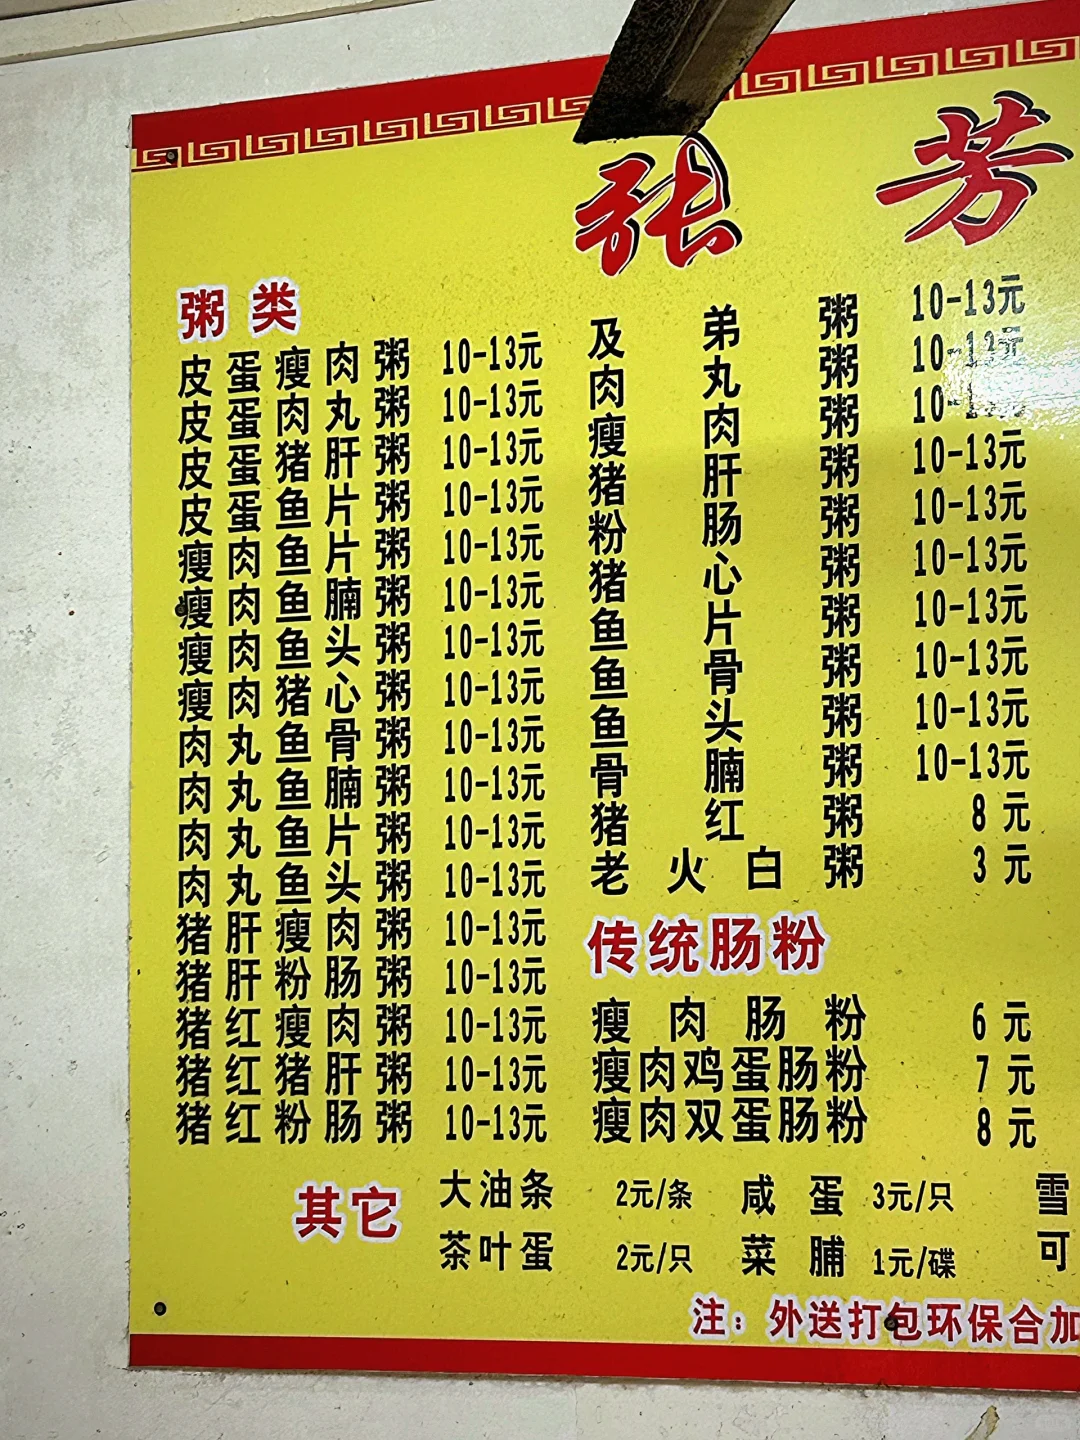 张 芳
粥类
皮蛋瘦肉粥 10-13元
皮蛋肉丸粥 10-13元
皮蛋猪肝粥 10-13元
皮蛋鱼片粥 10-13元
瘦肉鱼片粥 10-13元
瘦肉鱼腩粥 10-13元
瘦肉鱼头粥 10-13元
瘦肉猪心粥 10-13元
肉丸鱼骨粥 10-13元
肉丸鱼腩粥 10-13元
肉丸鱼片粥 10-13元
肉丸鱼头粥 10-13元
猪肝瘦肉粥 10-13元
猪肝粉肠粥 10-13元
猪红瘦肉粥 10-13元
猪红猪肝粥 10-13元
猪红粉肠粥 10-13元
及弟粥 10-13元
肉丸粥 10-13元
瘦肉粥 10-13元
猪肝粥 10-13元
粉肠粥 10-13元
猪心粥 10-13元
鱼片粥 10-13元
鱼骨粥 10-13元
鱼头粥 10-13元
骨腩粥 10-13元
猪红粥 8元
老火白粥 3元
传统肠粉
瘦肉肠粉 6元
瘦肉鸡蛋肠粉 7元
瘦肉双蛋肠粉 8元
其它
大油条 2元/条 咸蛋 3元/只 雪
茶叶蛋 2元/只 菜脯 1元/碟 可
注：外送打包环保合加